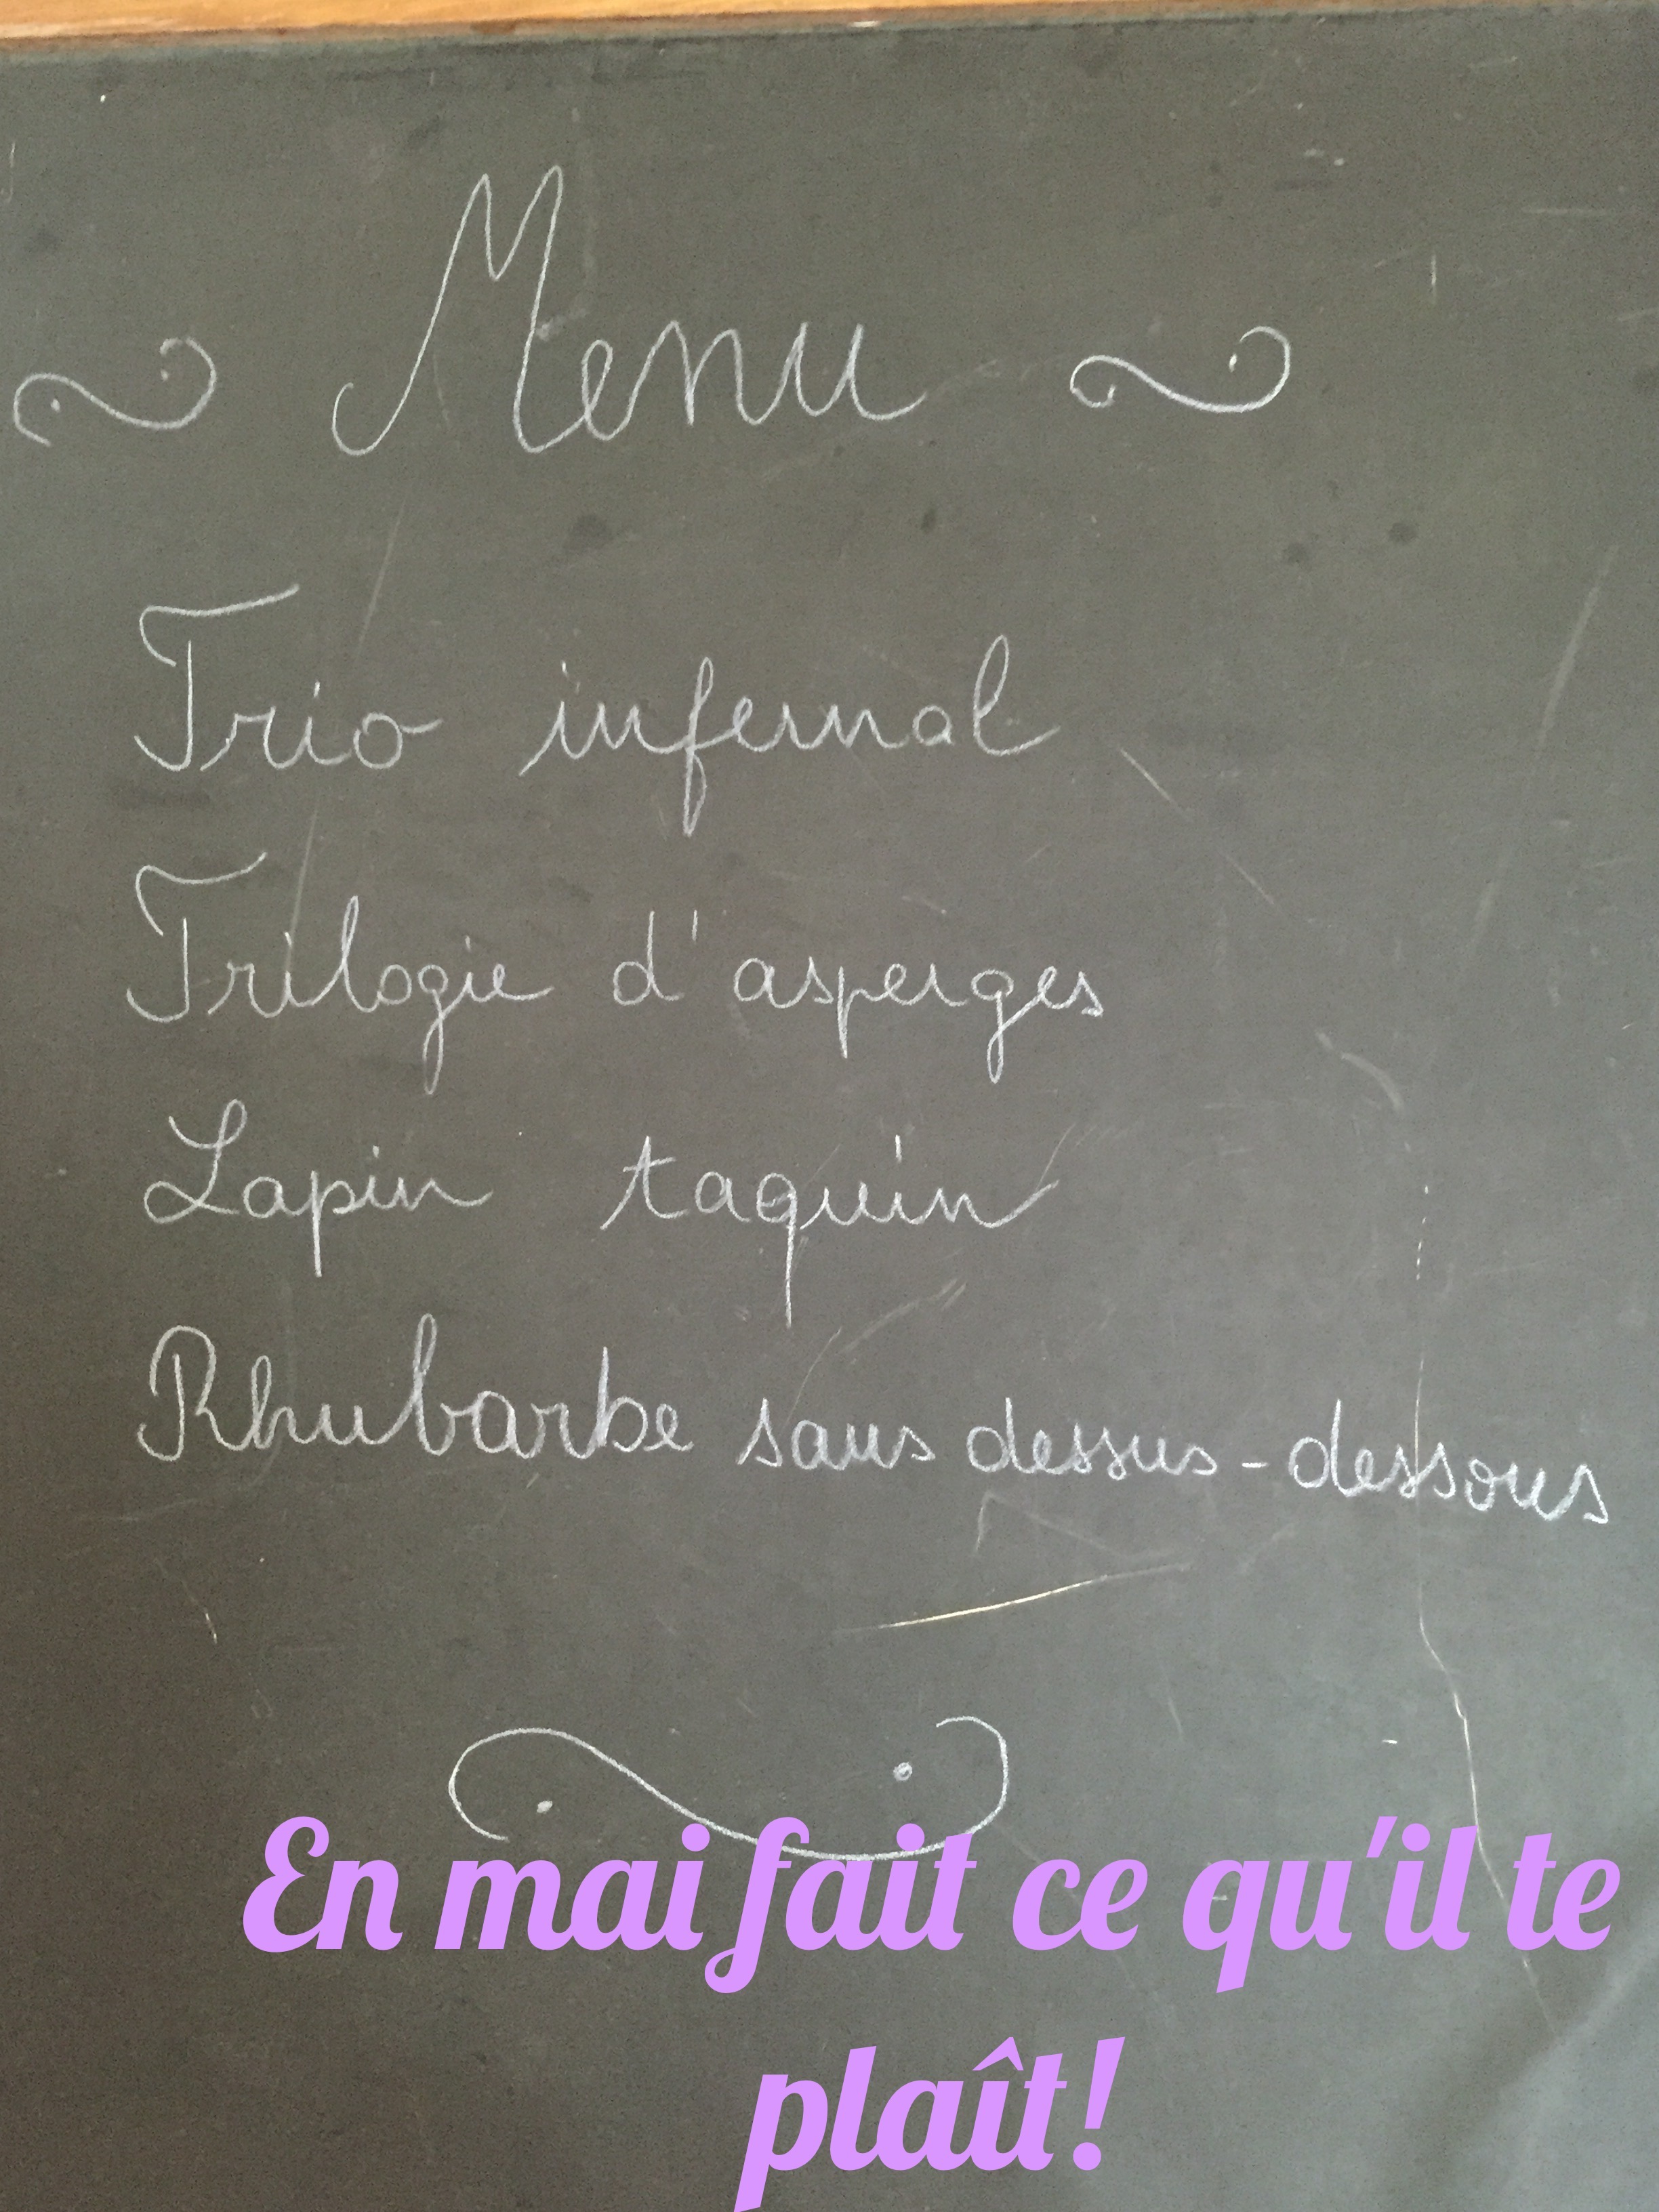 Menu
Trio infernal
Trilogie d'asperges
Lapin taquin
Rhubarbe sans dessus-dessous
En mai fait ce qu'il te
plaît!